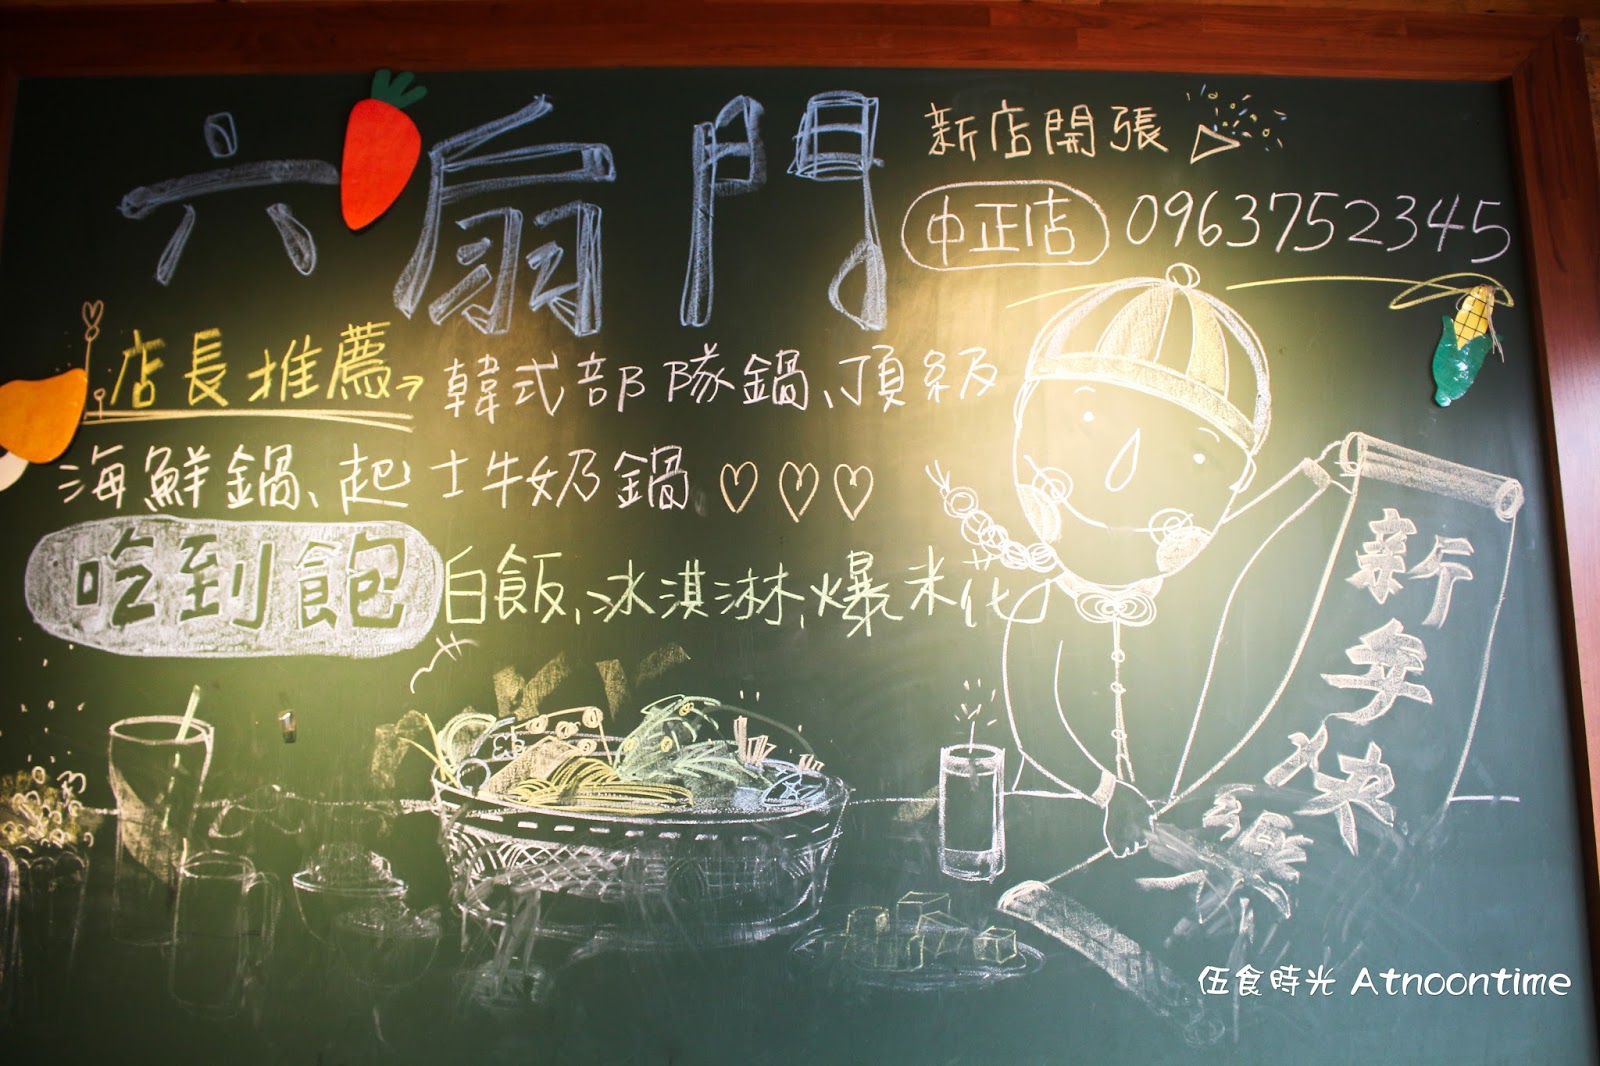 六扇門
新店開張
中正店 0963752345
店長推薦→韓式部隊鍋、頂級
海鮮鍋、起士牛奶鍋♡♡♡
吃到飽 白飯、冰淇淋、爆米花
新
季
來
伍食時光 Atnoontime